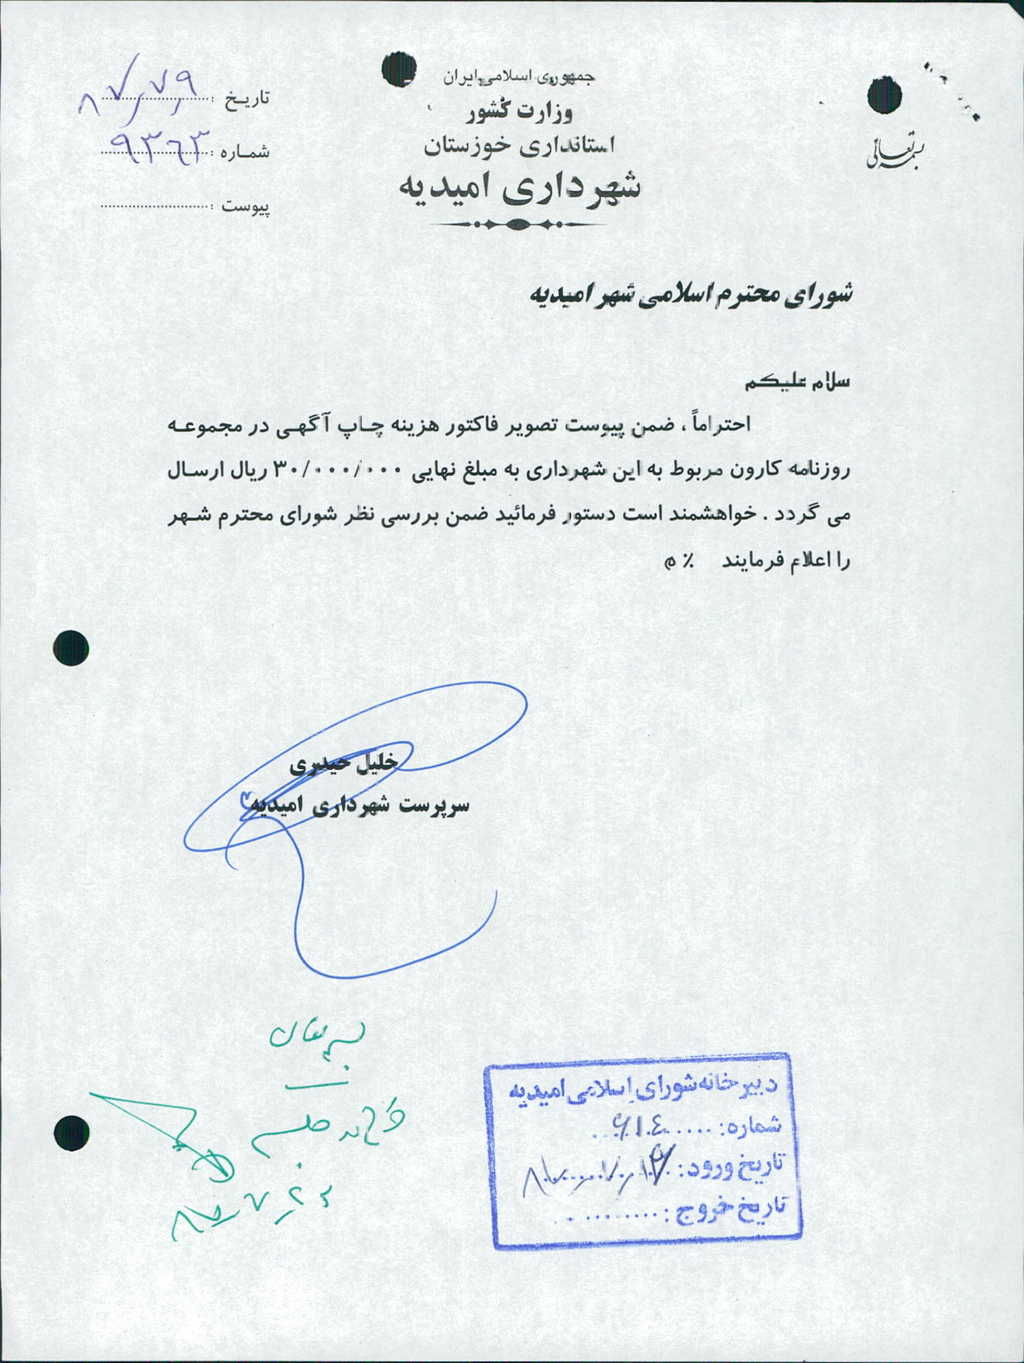 بسمه تعالی
جمهوری اسلامی ایران
وزارت کشور
استانداری خوزستان
شهرداری امیدیه
تاریخ : ۸۷/۷/۹
شماره : ۹۳۶۳
پیوست :
شورای محترم اسلامی شهر امیدیه
سلام علیکم
احتراماً ، ضمن پیوست تصویر فاکتور هزینه چاپ آگهی در مجموعه
روزنامه کارون مربوط به این شهرداری به مبلغ نهایی ۳۰/۰۰۰/۰۰۰ ریال ارسال
می گردد . خواهشمند است دستور فرمائید ضمن بررسی نظر شورای محترم شهر
را اعلام فرمایند ٪ م
خلیل حیدری
سرپرست شهرداری امیدیه
دبیرخانه شورای اسلامی امیدیه
شماره:
تاریخ ورود:
تاریخ خروج: